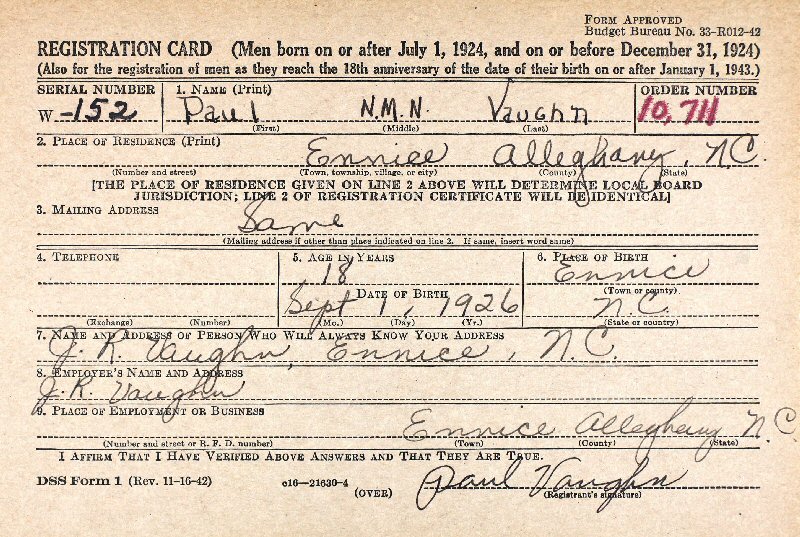 FORM APPROVED
Budget Bureau No. 33-R012-42
REGISTRATION CARD (Men born on or after July 1, 1924, and on or before December 31, 1924)
(Also for the registration of men as they reach the 18th anniversary of the date of their birth on or after January 1, 1943.)
SERIAL NUMBER 1. NAME (Print) ORDER NUMBER
W-152 Paul N.M.N. Vaughn 10,711
(First) (Middle) (Last)
2. PLACE OF RESIDENCE (Print)
Ennice Alleghany, N.C.
(Number and street) (Town, township, village, or city) (County) (State)
[THE PLACE OF RESIDENCE GIVEN ON LINE 2 ABOVE WILL DETERMINE LOCAL BOARD
JURISDICTION; LINE 2 OF REGISTRATION CERTIFICATE WILL BE IDENTICAL]
3. MAILING ADDRESS
Same
(Mailing address if other than place indicated on line 2. If same, insert word same)
4. TELEPHONE 5. AGE IN YEARS 6. PLACE OF BIRTH
18 Ennice
DATE OF BIRTH (Town or county)
Sept 1, 1926 N.C.
(Exchange) (Number) (Mo.) (Day) (Yr.) (State or country)
7. NAME AND ADDRESS OF PERSON WHO WILL ALWAYS KNOW YOUR ADDRESS
J. R. Vaughn, Ennice, N.C.
8. EMPLOYER'S NAME AND ADDRESS
J. R. Vaughn
9. PLACE OF EMPLOYMENT OR BUSINESS
Ennice Alleghany N.C.
(Number and street or R. F. D. number) (Town) (County) (State)
I AFFIRM THAT I HAVE VERIFIED ABOVE ANSWERS AND THAT THEY ARE TRUE.
DSS Form 1 (Rev. 11-16-42) c16-21630-4 Paul Vaughn
(OVER) (Registrant's signature)